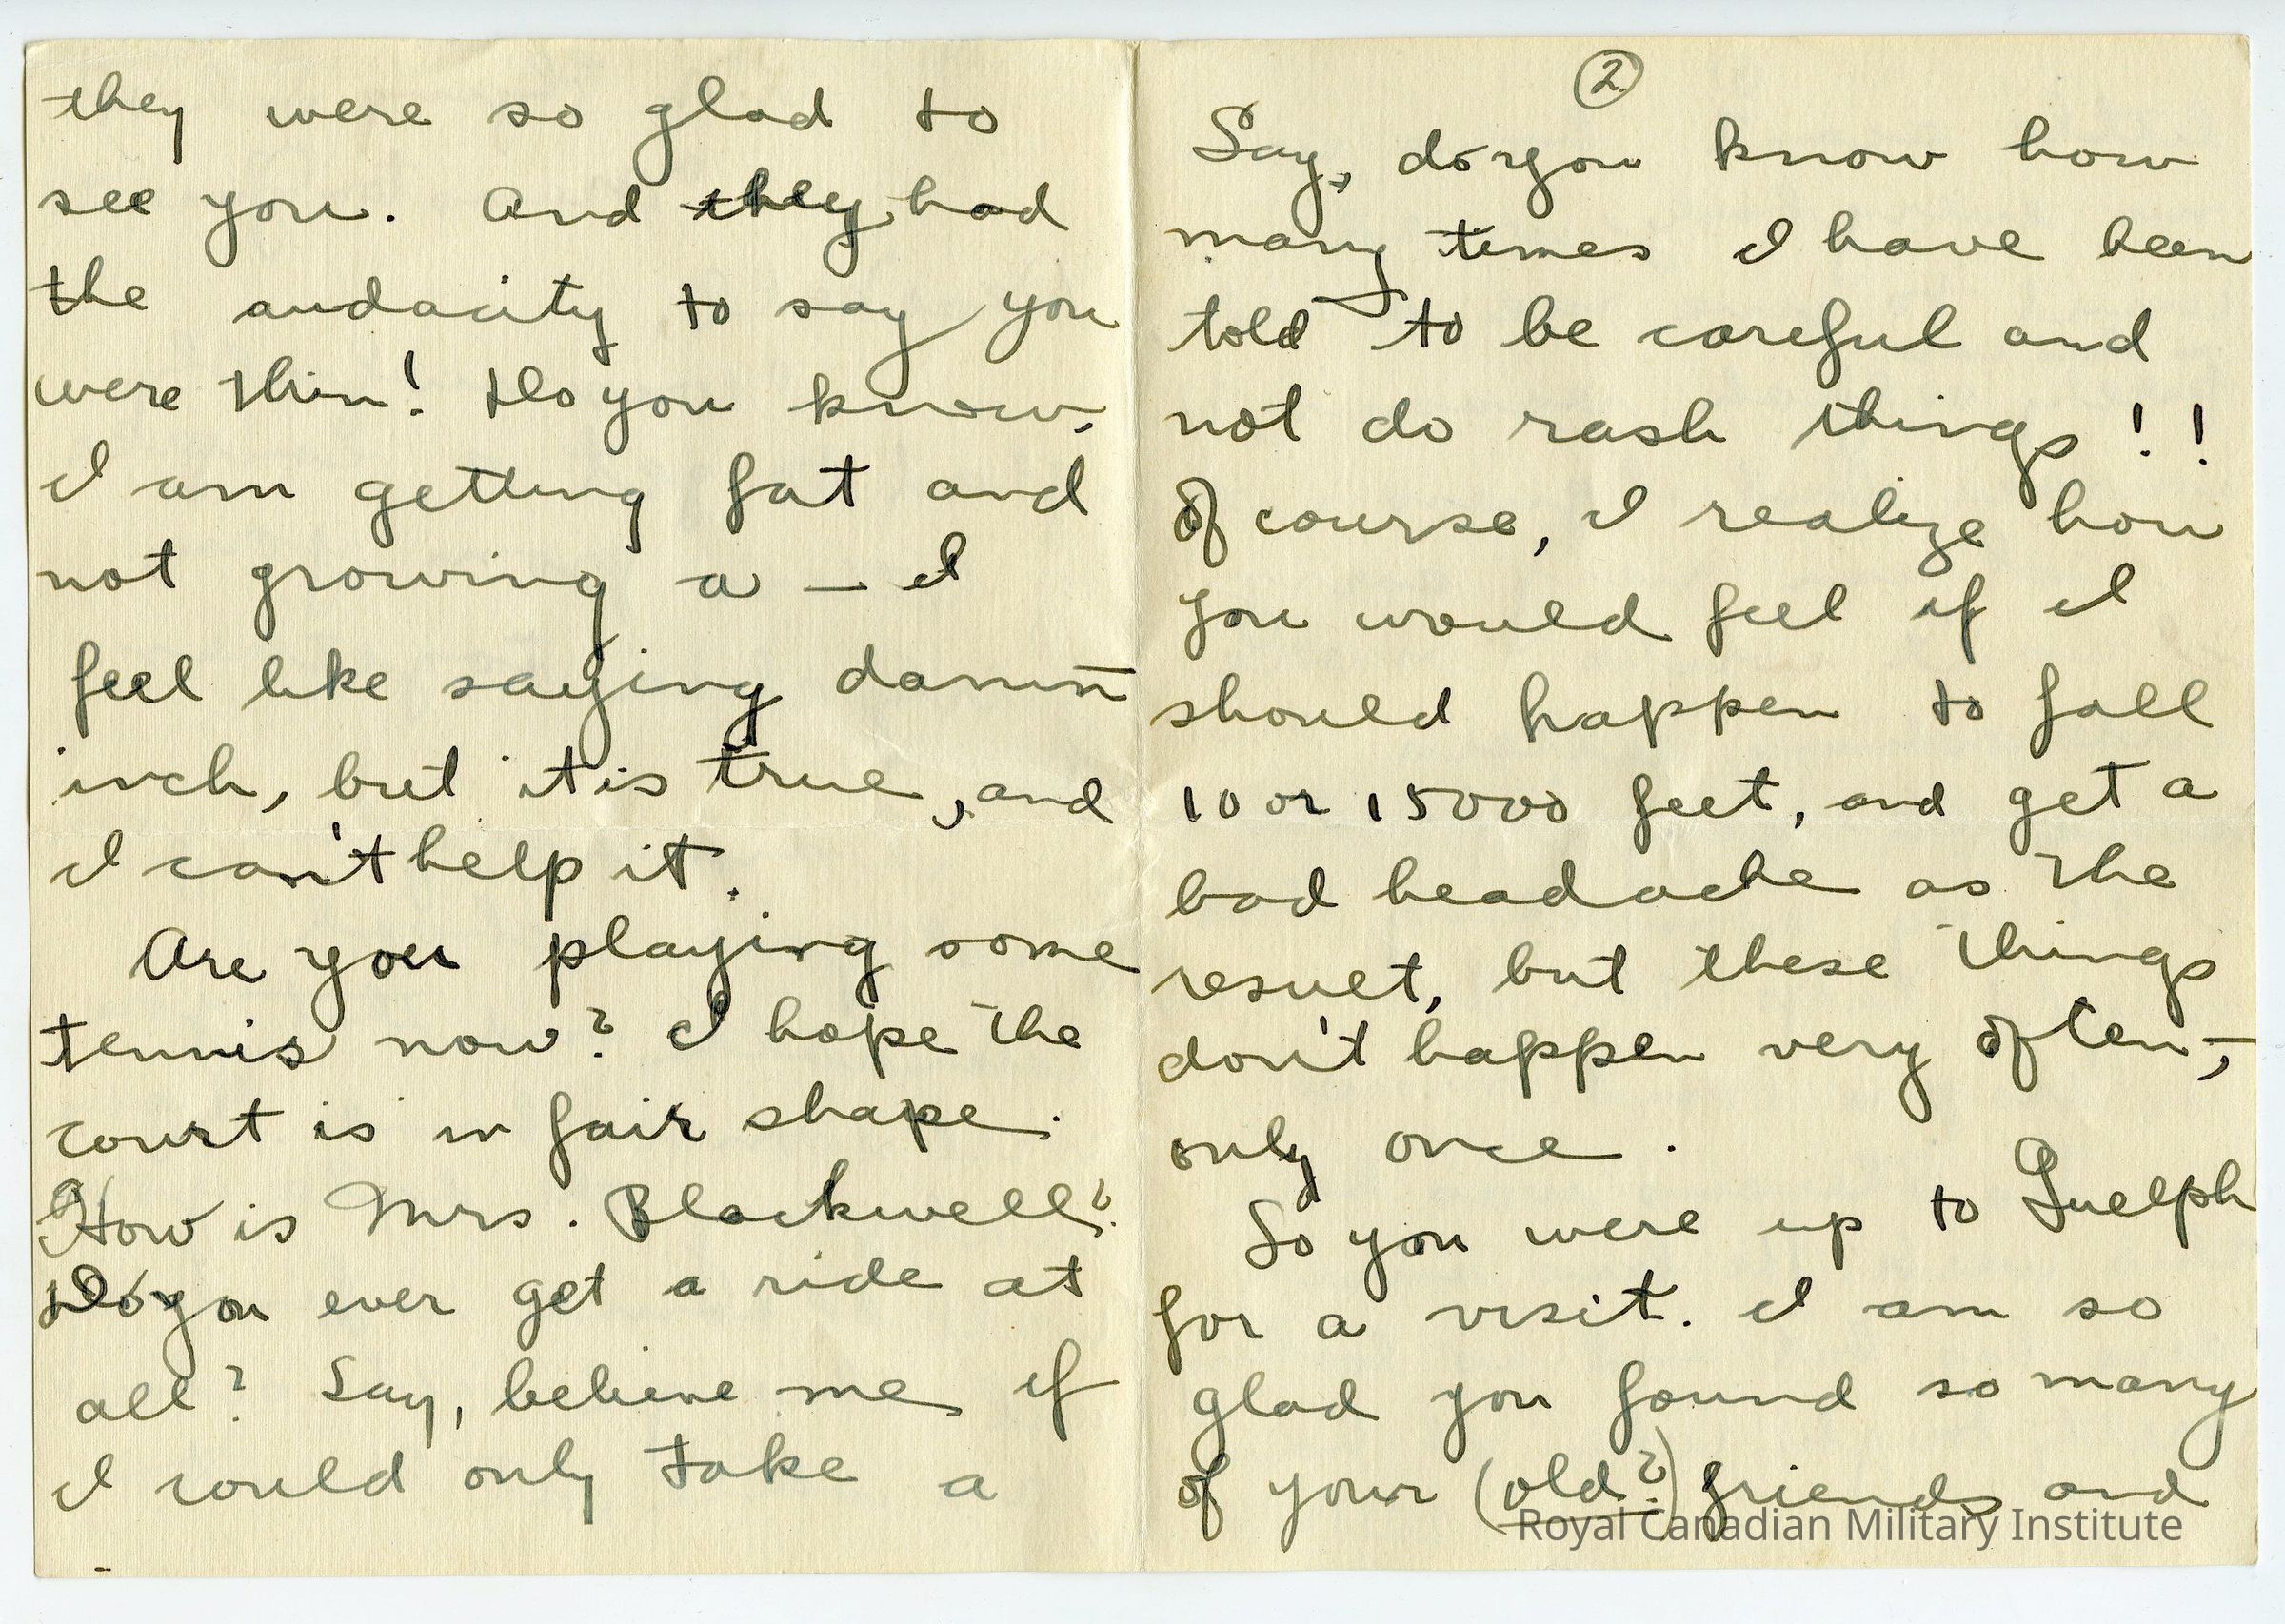 ②
Say, do you know how
many times I have been
told to be careful and
not do rash things!!
Of course, I realize how
you would feel if I
should happen to fall
10 or 15000 feet, and get a
bad headache as the
result, but these things
don't happen very often,—
only once.
So you were up to Guelph
for a visit. I am so
glad you found so many
of your (old?) friends and
they were so glad to
see you. And they had
the audacity to say you
were thin! Do you know,
I am getting fat and
not growing a — I
feel like saying damn —
inch, but it is true, and
I can't help it.
Are you playing some
tennis now? I hope the
court is in fair shape.
How is Mrs. Blackwell?
Do you ever get a ride at
all? Say, believe me if
I could only take a
Royal Canadian Military Institute